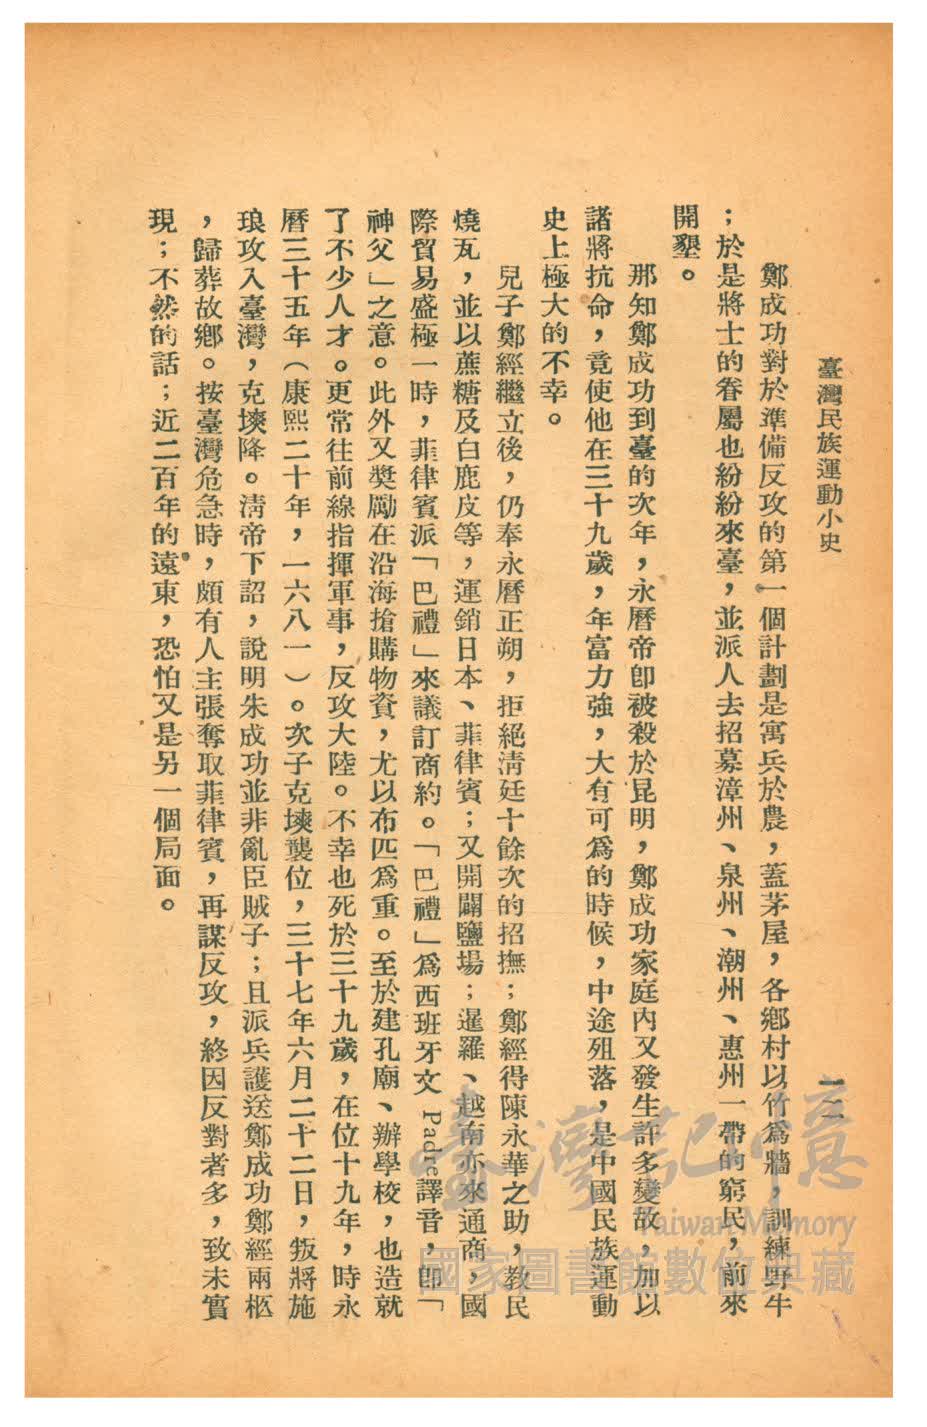 臺灣民族運動小史
一二
鄭成功對於準備反攻的第一個計劃是寓兵於農，蓋茅屋，各鄉村以竹爲牆，訓練野牛
；於是將士的眷屬也紛紛來臺，並派人去招募漳州、泉州、潮州、惠州一帶的窮民，前來
開墾。
那知鄭成功到臺的次年，永曆帝卽被殺於昆明，鄭成功家庭內又發生許多變故，加以
諸將抗命，竟使他在三十九歲，年富力強，大有可爲的時候，中途殂落，是中國民族運動
史上極大的不幸。
兒子鄭經繼立後，仍奉永曆正朔，拒絕淸廷十餘次的招撫；鄭經得陳永華之助，教民
燒瓦，並以蔗糖及白鹿皮等，運銷日本、菲律賓；又開闢鹽場；暹羅、越南亦來通商，國
際貿易盛極一時，菲律賓派「巴禮」來議訂商約。「巴禮」爲西班牙文 Padre譯音，卽「
神父」之意。此外又奬勵在沿海搶購物資，尤以布匹爲重。至於建孔廟、辦學校，也造就
了不少人才。更常往前線指揮軍事，反攻大陸。不幸也死於三十九歲，在位十九年，時永
曆三十五年（康熙二十年，一六八一）。次子克塽襲位，三十七年六月二十二日，叛將施
琅攻入臺灣，克塽降。淸帝下詔，說明朱成功並非亂臣賊子；且派兵護送鄭成功鄭經兩柩
，歸葬故鄉。按臺灣危急時，頗有人主張奪取菲律賓，再謀反攻，終因反對者多，致未實
現；不然的話；近二百年的遠東，恐怕又是另一個局面。
臺灣記憶
Taiwan Memory
國家圖書館數位典藏